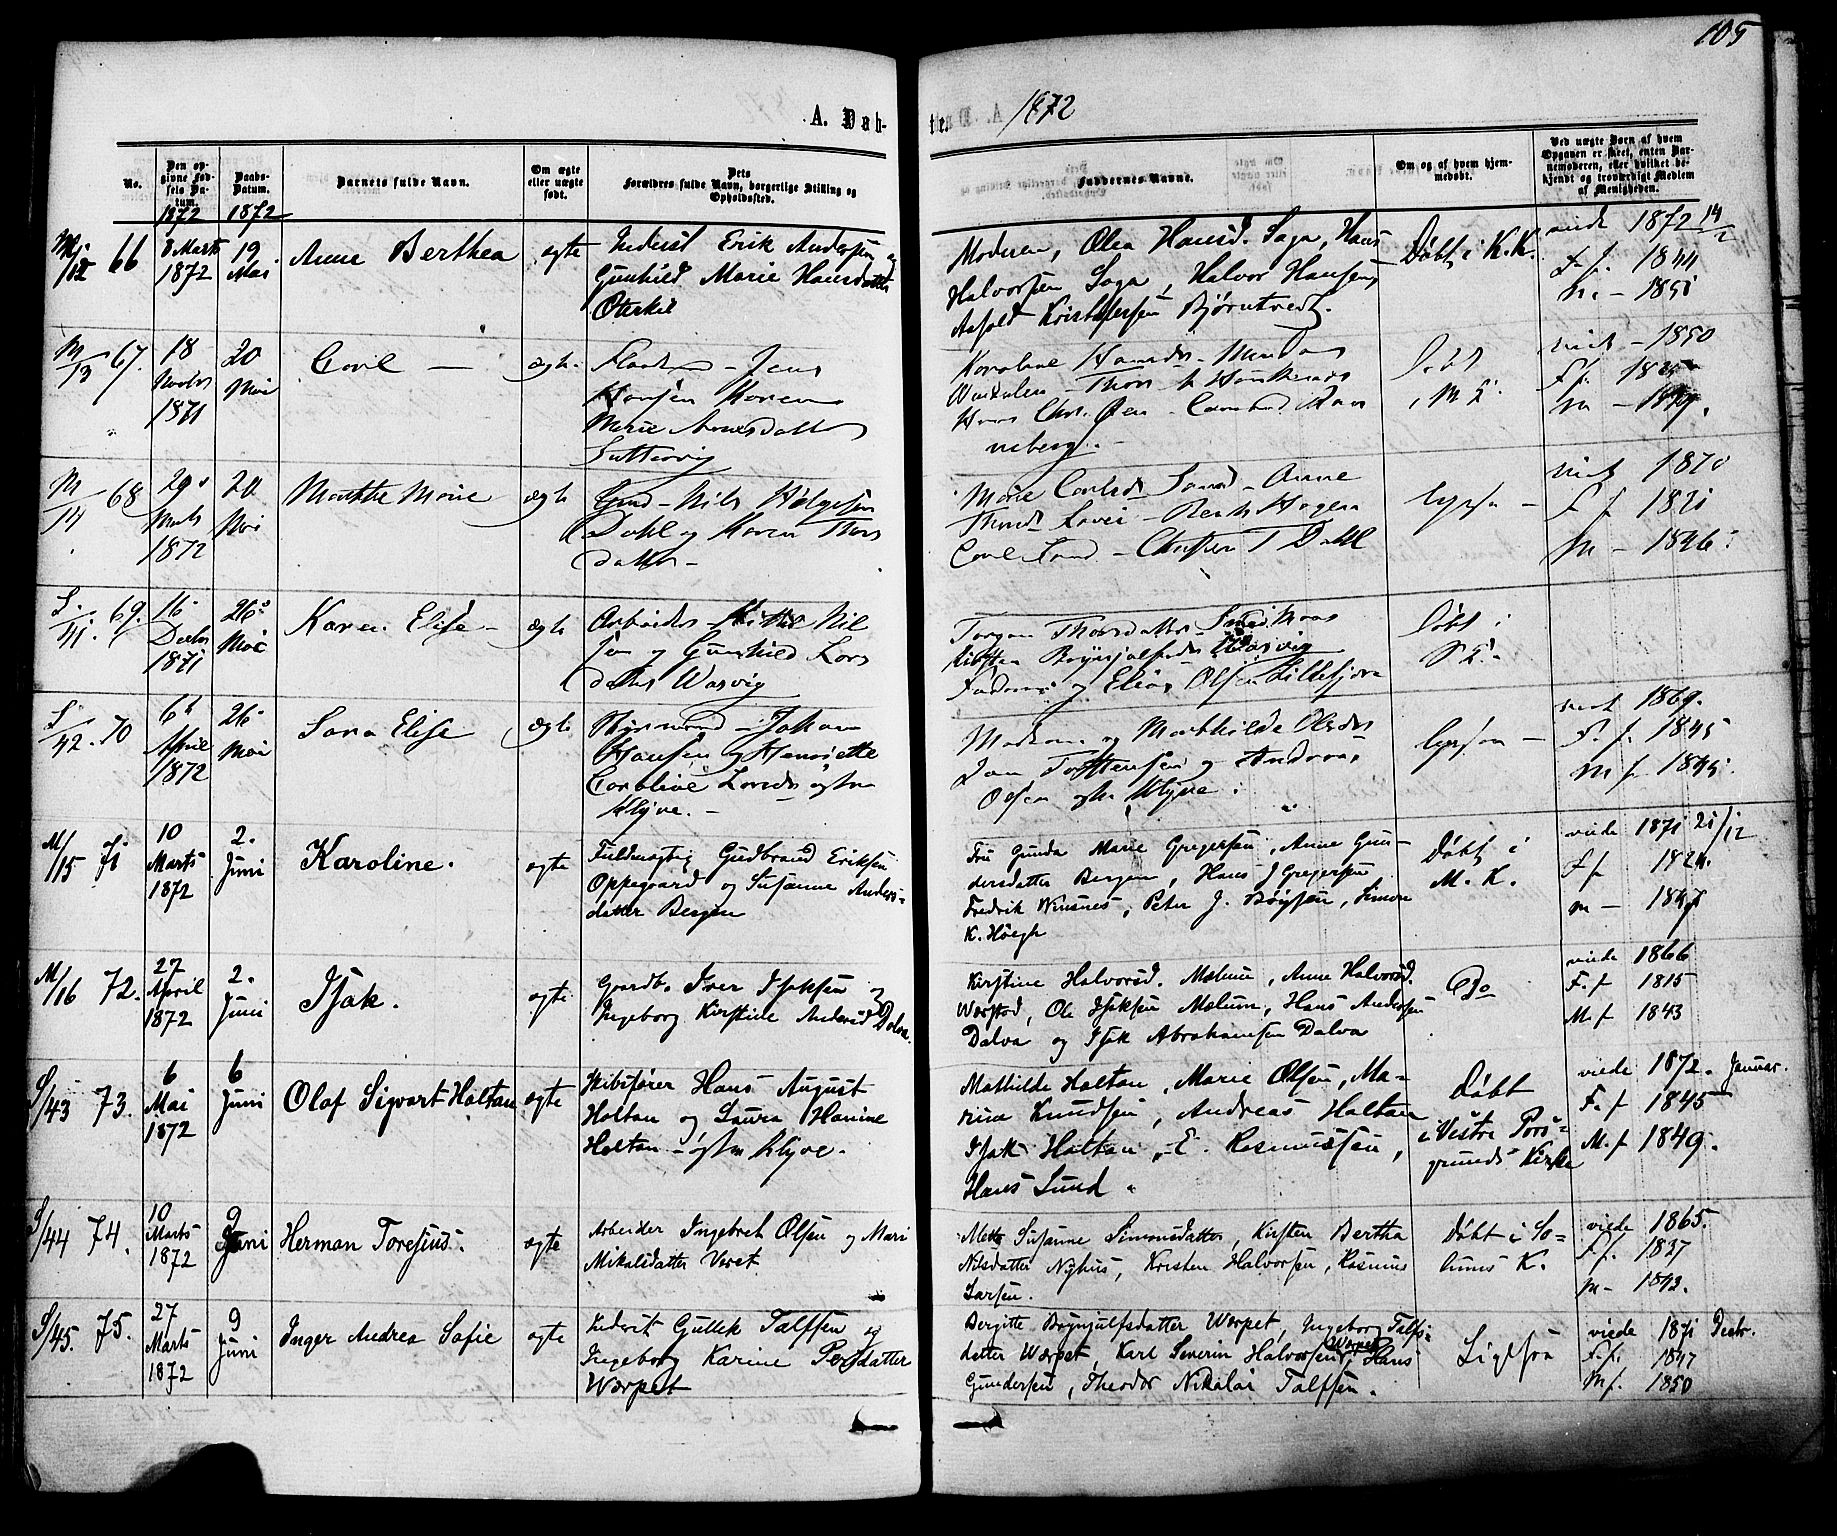 105
A. Døbte. 1872
No.
Den opgivne Fødsels Datum.
1872
Daabs-Datum.
1872
Barnets fulde Navn.
Om ægte eller uægte født.
Dets Forældres fulde Navn, borgerlige Stilling og Opholdssted.
Faddernes Navne.
Om og af hvem hjemmedøbt.
Ved uægte Børn af hvem Opgaven er skeet, enten Barnemoderen, eller hvilket bekjendt og troværdigt Medlem af Menigheden.
M/12 66
8 Marts 1872
19 Mai
Anne Berthea
ægte
Inderst Erik Andersen og
Gunhild Marie Hansdatter
Moderen, Olea Hansd. Saga, Hans
Halvorsen Saga, Halvor Hansen,
Kristofersen Bjørntvedt.
Døbt i K.K.
viede 1872 14/2
F. f. 1844
M. - 1851
M/13 67.
18 Novbr 1871
20 Mai
Carl
ægte
Jens
Hansen Maren
Marie
Hans Chr. Øen
Døbt
i M K.
viet - 1850
F f.
M -
M/14 68
29 Marts 1872
20 Mai
Marthe Marie
ægte
Nils Helgesen
Dahl og Maren Thors
datter -
Marie Carlsd. Sand - Anne
Carl Sand - Christen T Dahl
Ligesaa -
viet 1870
F f
M - 1846
S/41 69.
16 Decbr 1871
26 Mai
Karen Elise -
ægte
Arbeider Kittil Nil
sen og Gunhild Lars
datter Wasvig
Torgon Thorsdatter
Kirsten Brynjulfsdr. Wasvig
Faderen og Elias Olsen Lillefjære
Døbt i
S K.
S/42. 70
6 April 1872
26 Mai
Sara Elise
ægte
Styrmand - Johan
Hansen og Henriette
Caroline Larsdr østre
Klyve. -
og Mathilde Olsdr
Torstensen og Andreas
Olsen østre Klyve.
Ligesaa -
viet 1869.
F. f. 1845
M f 1845.
M/15 71
10 Marts 1872
2. Juni
Karoline.
ægte
Fuldmægtig Gudbrand Eriksen
Oppegaard og Susanne Anders-
datter Bergen
Fru Gunda Marie Gregersen, Anne Gun-
dersdatter Bergen, Hans J Gregersen
Fredrik Winsnes, Peter J. Bøysen, Simon
K. Høegh
Døbt i
M. K.
viede 1871 21/12
F f 182
M - 1847
M/16 72.
27 April 1872
2. Juni
Isak.
ægte
Gaardb. Iver Isaksen og
Ingeborg Kirstine Andersd Dalva.
Kirstine Halvorsd. Mælum, Anne Halvorsd.
Wærstad, Ole Isaksen Mælum, Hans Andersen
Dalva og Isak Abrahamsen Dalva
Do
viede 1866
F. f 1815
M. f 1843
S/43 73.
6 Mai 1872
6 Juni
Olaf Sigvart Holtan
ægte
Skibsfører Hans August
Holtan og Laura Hanine
Holtan - østre Klyve.
Mathilde Holtan, Marie Olsen, Ma-
rina Knudsen, Andreas Holtan
Isak Holtan, E. Rasmussen,
Hans Lund
Døbt
i Vestre Pors-
grunds Kirke
viede 1872. Januar.
F. f 1845
M. f 1849.
S/44 74.
10 Marts 1872
9 Juni
Herman Toresius.
ægte
Arbeider Ingebret Olsen og Mari
Mikalsdatter Veret
Mette Susanne Simonsdatter, Kirsten Bertha
Nilsdatter Nyhus, Kristen Halvorsen, Rasmus
Larsen.
Døbt i So-
lums K.
viede 1865.
F. f. 1837
M - 1842.
S/45. 75.
27 Marts 1872
9 Juni
Inger Andrea Sofie
ægte
Inderst Gullek Talfsen og
Ingeborg Karine Persdatter
Wærpet
Bergitte Brynjulfsdatter Wærpet, Ingeborg Talfs-
datter Wærpet, Karl Severin Halvorsen Wærpet, Hans
Gundersen, Theodor Nikolai Talfsen.
Ligesaa
viede 1871 Decbr.
F. f. 1847
M f. 1850